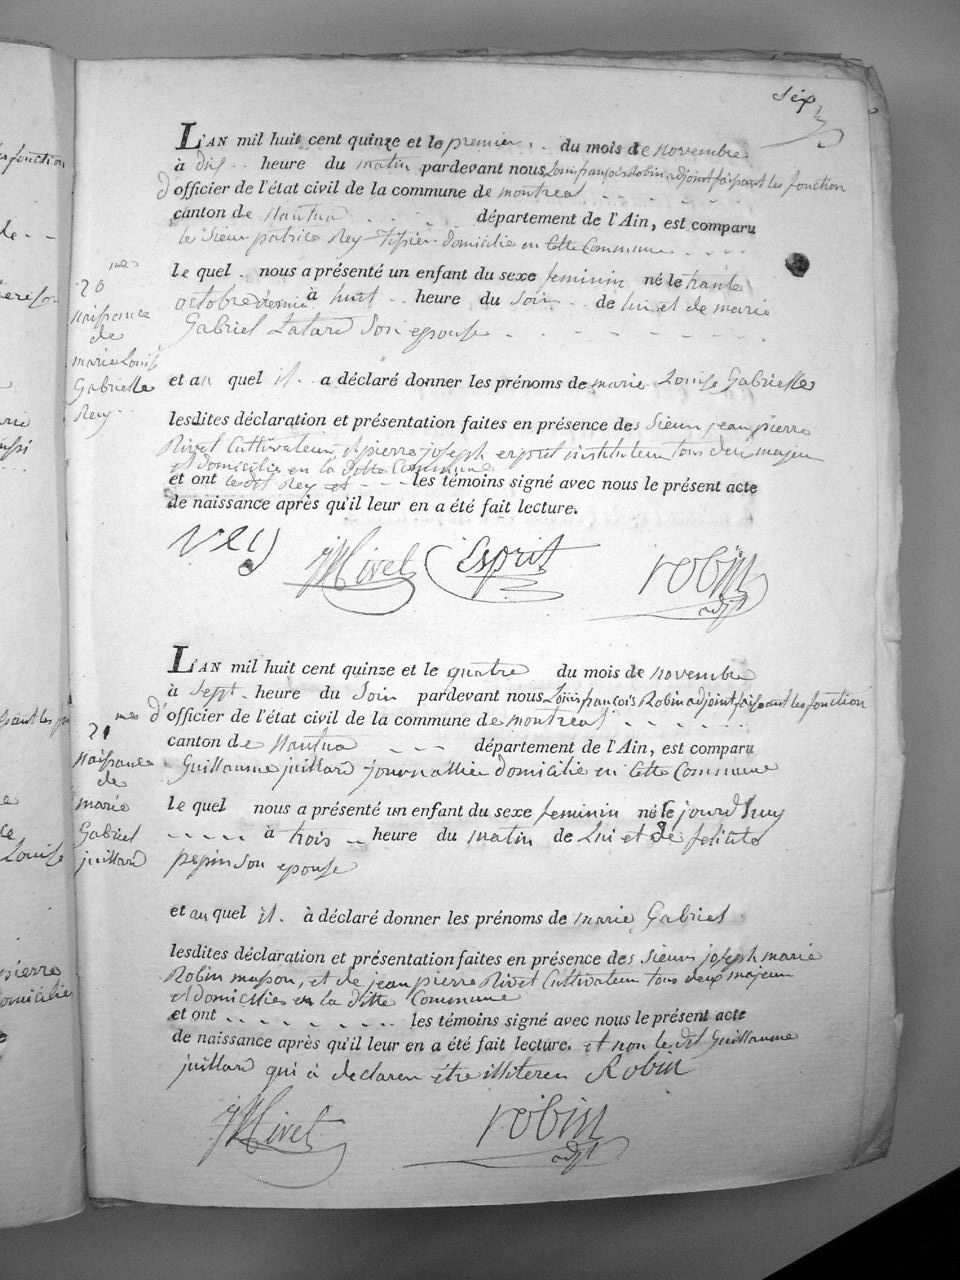 Six
L'AN mil huit cent quinze et le premier du mois de novembre
à dix heure du matin pardevant nous Louis françois Robin adjoint faisant les fonction
d'officier de l'état civil de la commune de montreal
canton de Nantua département de l'Ain, est comparu
le Sieur patrice Rey domicilié en Cette Commune
le quel nous a présenté un enfant du sexe feminin né le trante
octobre dernier à huit heure du soir de lui et de marie
Gabriel Latard Son epouse
et au quel il a déclaré donner les prénoms de marie Louise Gabrielle
lesdites déclaration et présentation faites en présence des Sieurs jean pierre
Rivet Cultivateur, et pierre joseph esprit instituteur tous deux majeur
et domicilie en la ditte Commune
et ont ledit Rey et les témoins signé avec nous le présent acte
de naissance après qu'il leur en a été fait lecture.
20 mes
Naissance
de
marie Louise
Gabrielle
Rey
rey JPRivet Esprit robin
adjt
L'AN mil huit cent quinze et le quatre du mois de novembre
à Sept heure du Soir pardevant nous Louis françois Robin adjoint faisant les fonction
d'officier de l'état civil de la commune de montreal
canton de Nantua département de l'Ain, est comparu
Guillaume juillard journallier domicilie en Cette Commune
le quel nous a présenté un enfant du sexe feminin né le jourd'huy
à trois heure du matin de Lui et de felicite
pepin son epouse
et au quel il à déclaré donner les prénoms de marie Gabriel
lesdites déclaration et présentation faites en présence des Sieurs joseph marie
Robin masson, et de jean pierre Rivet Cultivateur tous deux majeur
et domicilies en la ditte Commune
et ont les témoins signé avec nous le présent acte
de naissance après qu'il leur en a été fait lecture. et non le dit Guillaume
juillard qui à declaren être illiteren Robin
21 mes
Naissance
de
marie
Gabriel
juillard
JPRivet robin
adjt